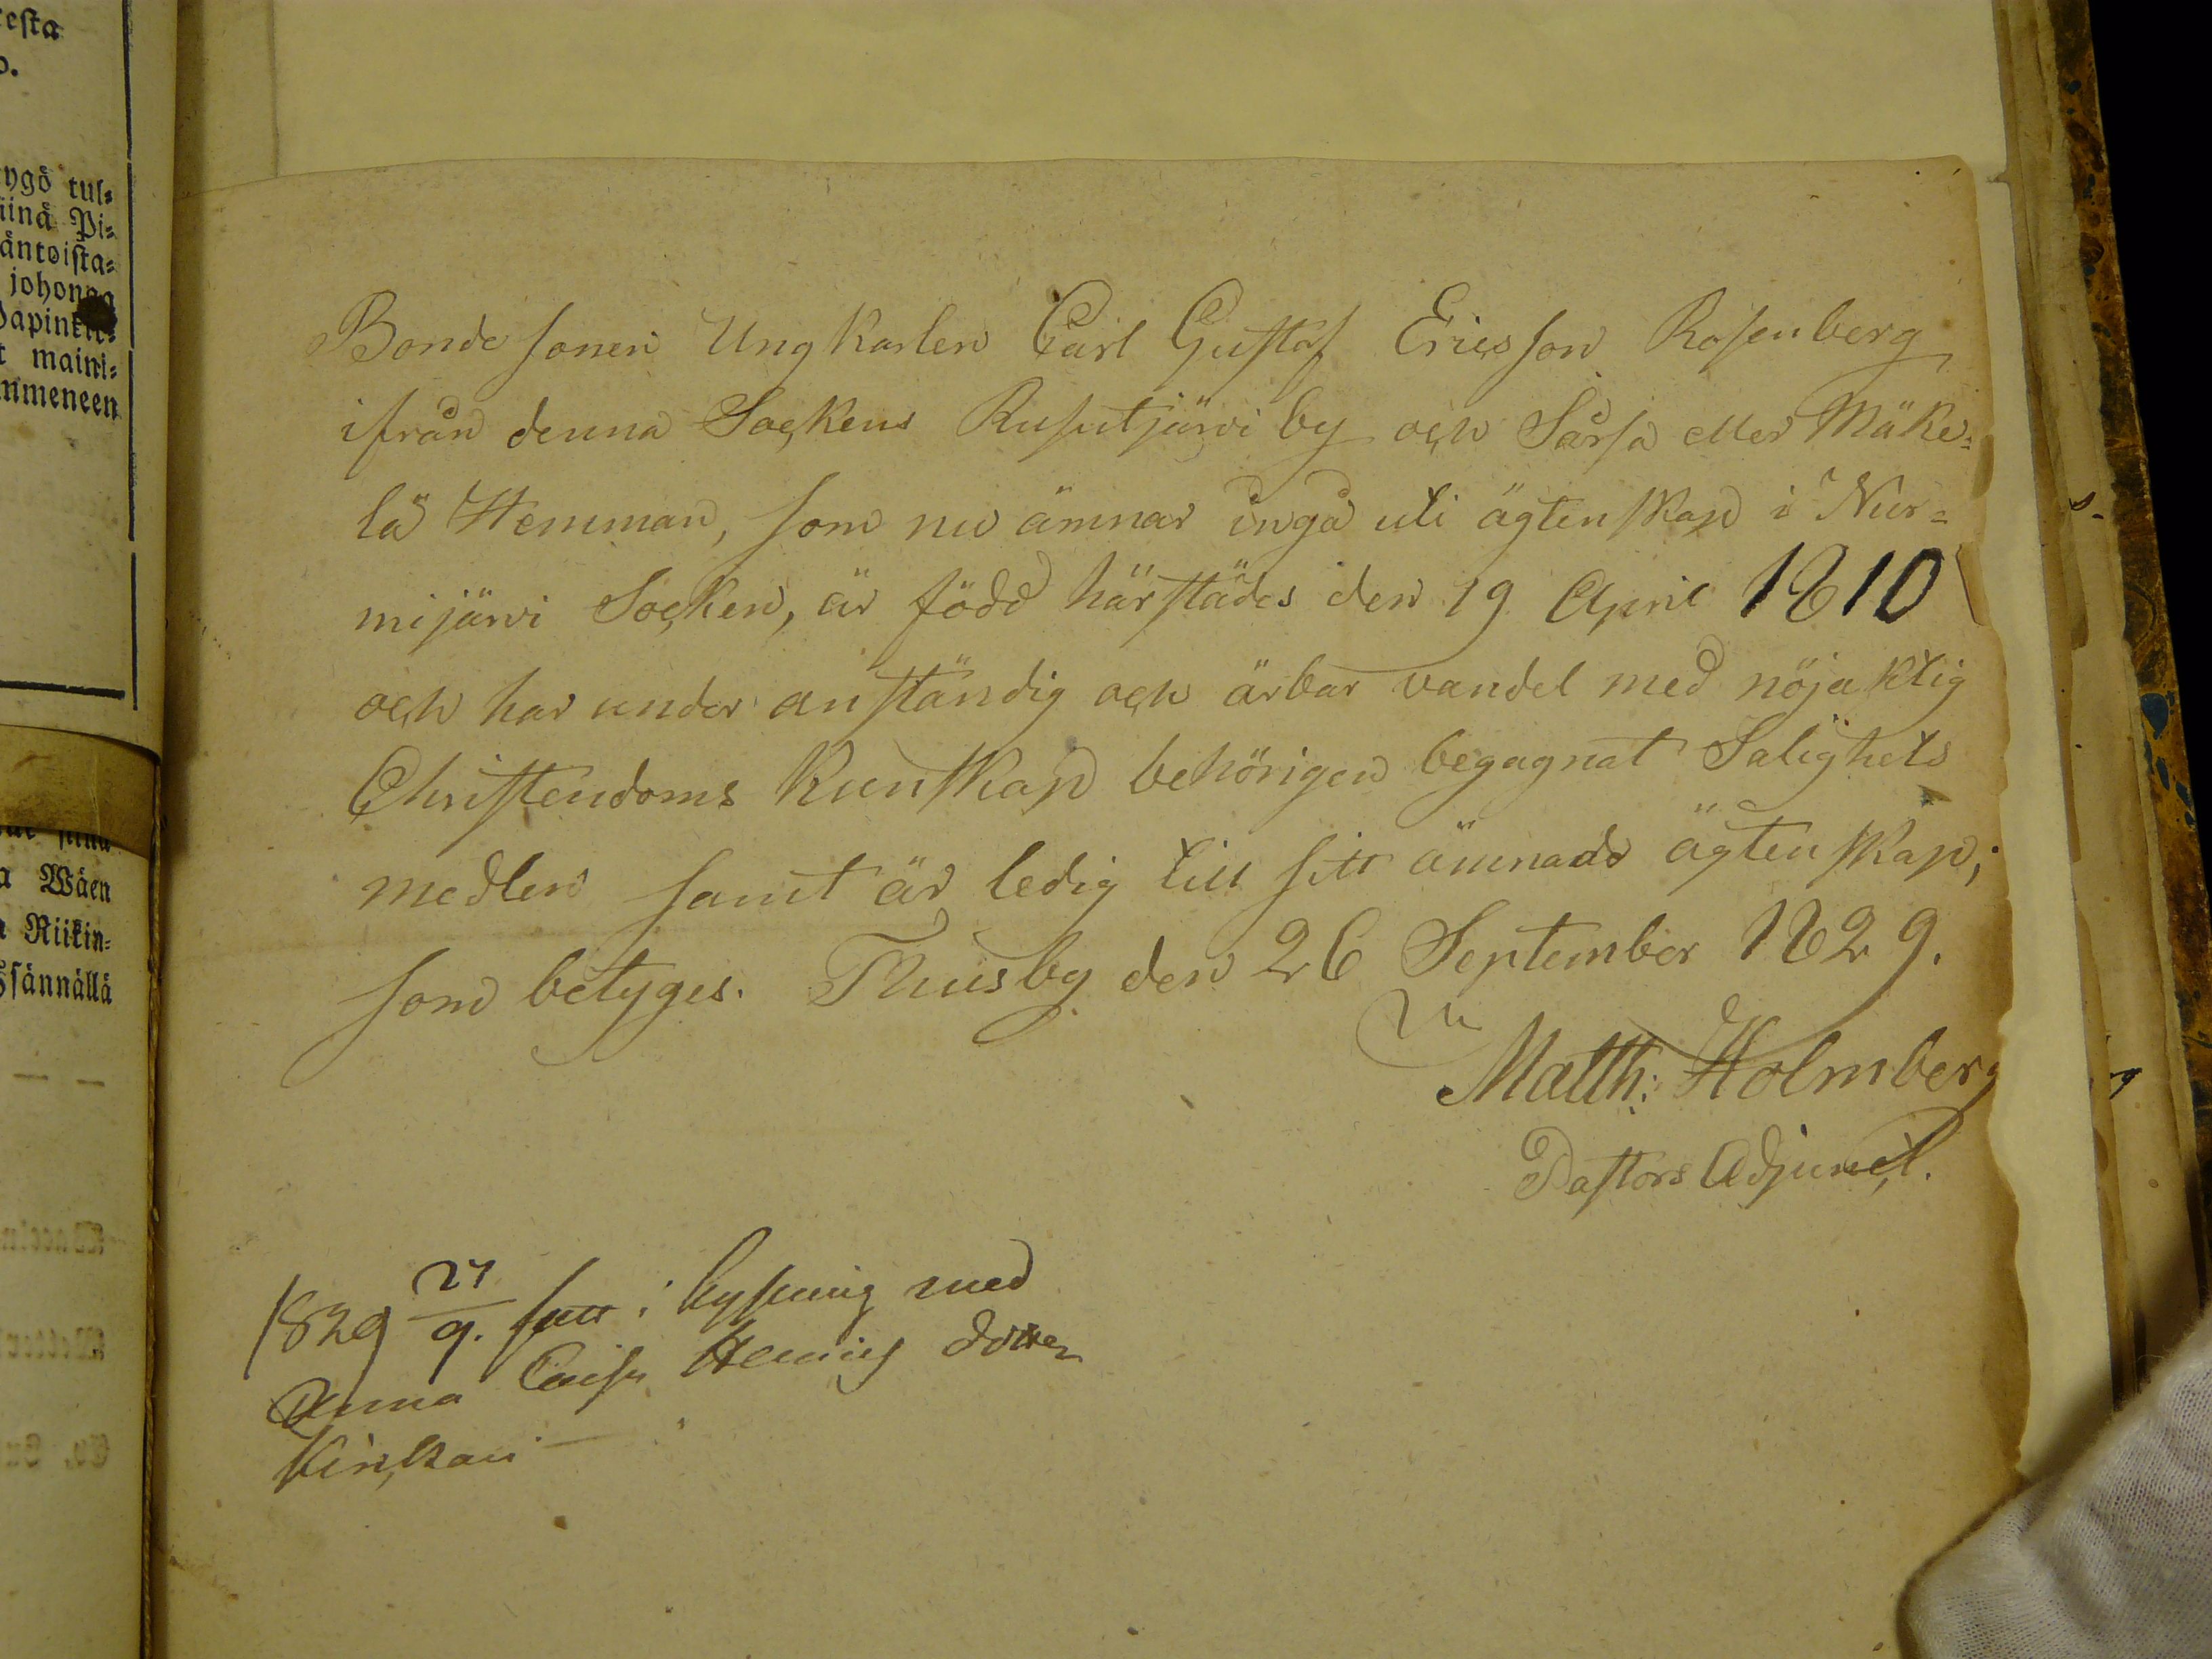 esta
o.
ygö tul=
iinä Pi=
äntoista=
johonga
maini=
mmeneen
Wäen
Riikin=
sännällä
Bonde sonen Ung Karlen Carl Gustaf Ericsson Rosenberg
ifrån denna Sockens Rusutjärvi by och Sarsa eller Mäke=
lä Hemman, som nu ämnar ingå uti ägtenskap i Nur=
mijärvi Socken, är född härstädes den 19 April 1810
och har under anständig och ärbar vandel med nöjaktig
Christendoms Kunskap behörigen begagnat Salighets
medlen samt är ledig till sitt ämnade ägtenskap;
som betyges. Thusby den 26 September 1829.
Matth: Holmberg
Pastors Adjunct.
1829 27/9. i lysning med
Anna Caisa Henrics dotter